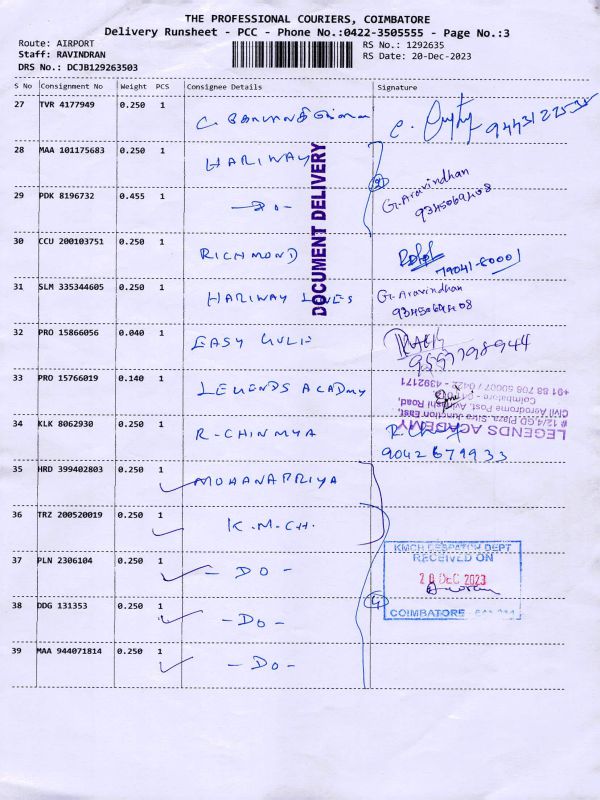 THE PROFESSIONAL COURIERS, COIMBATORE
Delivery Runsheet - PCC - Phone No.:0422-3505555 - Page No.:3
Route: AIRPORT RS No.: 1292635
Staff: RAVINDRAN RS Date: 20-Dec-2023
DRS No.: DCJB129263503
S No Consignment No Weight PCS Consignee Details Signature
27 TVR 4177949 0.250 1 C. 
28 MAA 101175683 0.250 1 HARIWAY
29 PDK 8196732 0.455 1 - Do - (2) G. Aravindhan
30 CCU 200103751 0.250 1 RICHMOND 79041-80001
31 SLM 335344605 0.250 1 HARIWAY LINES G. Aravindhan
32 PRO 15866056 0.040 1 EASY 9597798944
33 PRO 15766019 0.140 1 LEGENDS ACADMY
34 KLK 8062930 0.250 1 R-CHINMYA
9042679933
35 HRD 399402803 0.250 1 MOHANAPRIYA
36 TRZ 200520019 0.250 1 K.M.CH.
37 PLN 2306104 0.250 1 - DO -
38 DDG 131353 0.250 1 - DO - (4)
39 MAA 944071814 0.250 1 - DO -
DOCUMENT DELIVERY
LEGENDS ACADEMY
# 12/4 GD Plaza, Sitra Junction East,
Civil Aerodrome Post, Avinashi Road,
KMCH DESPATCH DEPT
RECEIVED ON
20 DEC 2023
COIMBATORE